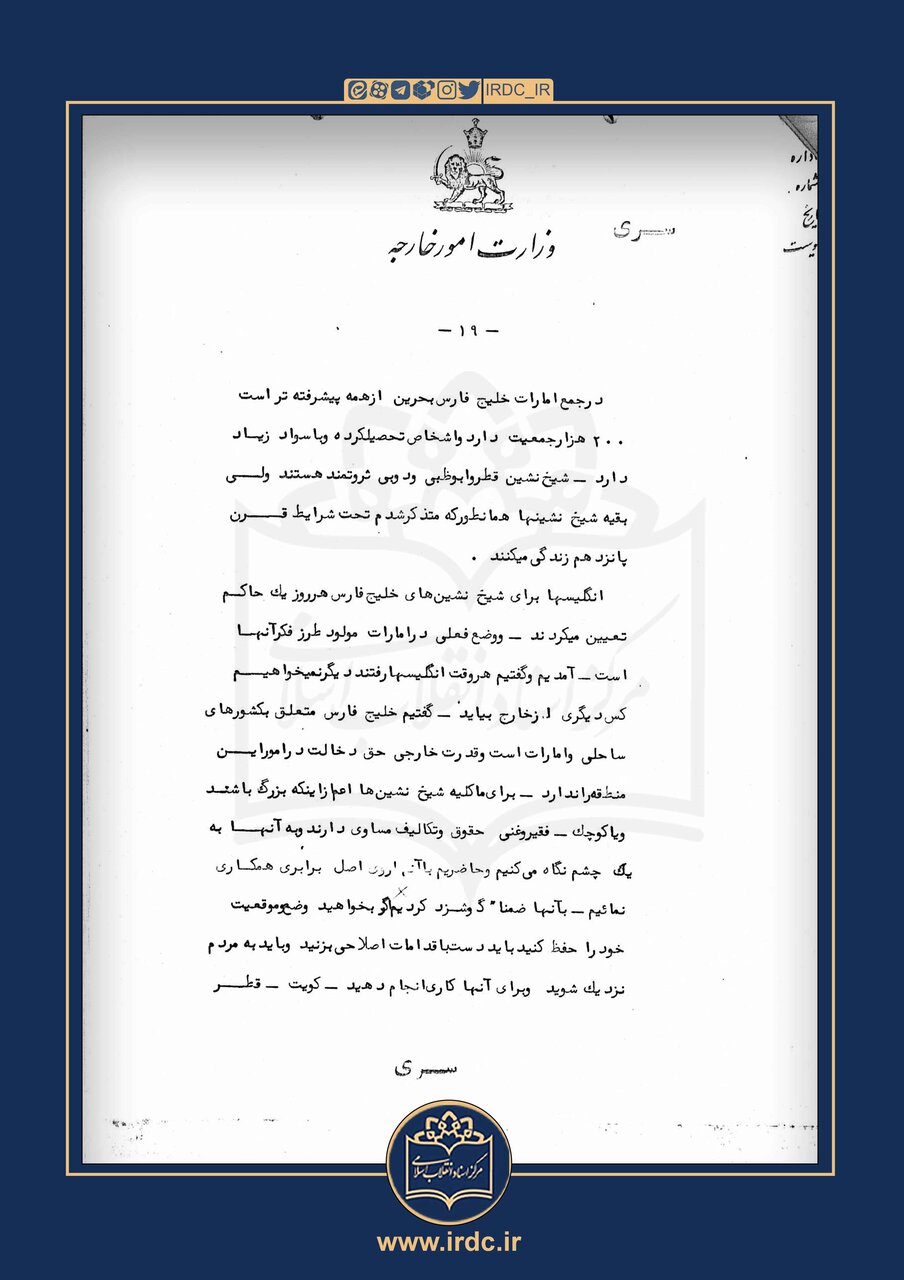 IRDC_IR
اداره
شماره
تاریخ
پیوست
سری
وزارت امور خارجه
- ۱۹ -
درجمع امارات خلیج فارس بحرین ازهمه پیشرفته تر است
۲۰۰ هزارجمعیت دارد واشخاص تحصیلکرده وباسواد زیاد
دارد ــ شیخ نشین قطروابوظبی ودوبی ثروتمند هستند ولــی
بقیه شیخ نشینها همانطورکه متذکرشدم تحت شرایط قــرن
پانزدهم زندگی میکنند .
انگلیسها برای شیخ نشین‌های خلیج فارس هرروز یك حاکم
تعیین میکردند ــ ووضع فعلی درامارات مولود طرز فکرآنهـا
است ــ آمدیم وگفتیم هروقت انگلیسها رفتند دیگرنمیخواهیـم
کس دیگری ازخارج بیاید ــ گفتیم خلیج فارس متعلق بکشورهای
ساحلی وامارات است وقدرت خارجی حق دخالت درامورایــن
منطقه راندارد ــ برای ماکلیه شیخ نشین ها اعم ازاینکه بزرگ باشند
ویاکوچك ــ فقیروغنی حقوق وتکالیف مساوی دارند وبه آنهــا به
یك چشم نگاه می‌کنیم وحاضریم باآنها روی اصل برابری همکـاری
نمائیم ــ بآنها ضمناً گوشزد کردیم اگر بخواهید وضع وموقعیت
خود را حفظ کنید باید دست باقدامات اصلاحی بزنید وباید به مردم
نزدیك شوید وبرای آنها کاری انجام دهید ــ کویت ــ قطــر
سری
مرکز اسناد انقلاب اسلامی
www.irdc.ir